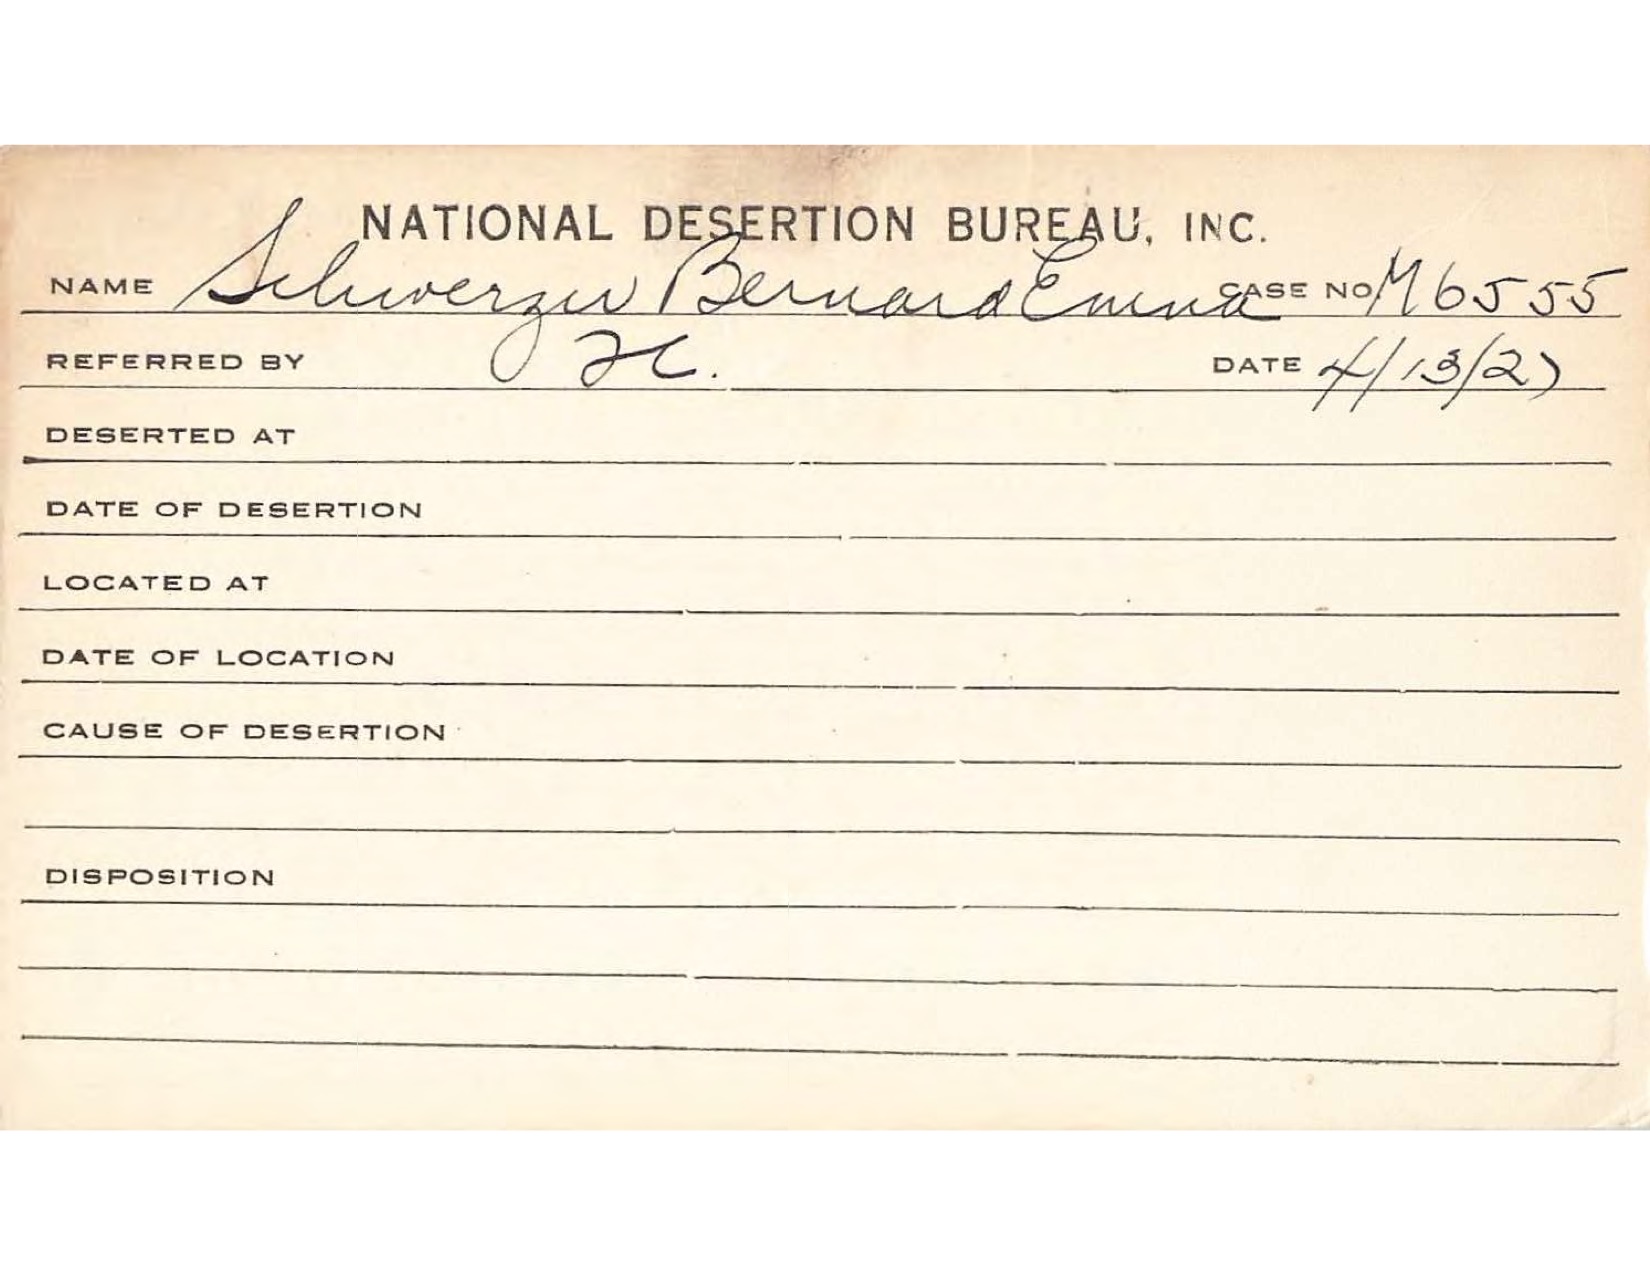 NATIONAL DESERTION BUREAU, INC.
NAME Schwerzer Bernard Emma CASE NO M6555
REFERRED BY DATE 4/13/27
DESERTED AT
DATE OF DESERTION
LOCATED AT
DATE OF LOCATION
CAUSE OF DESERTION
DISPOSITION